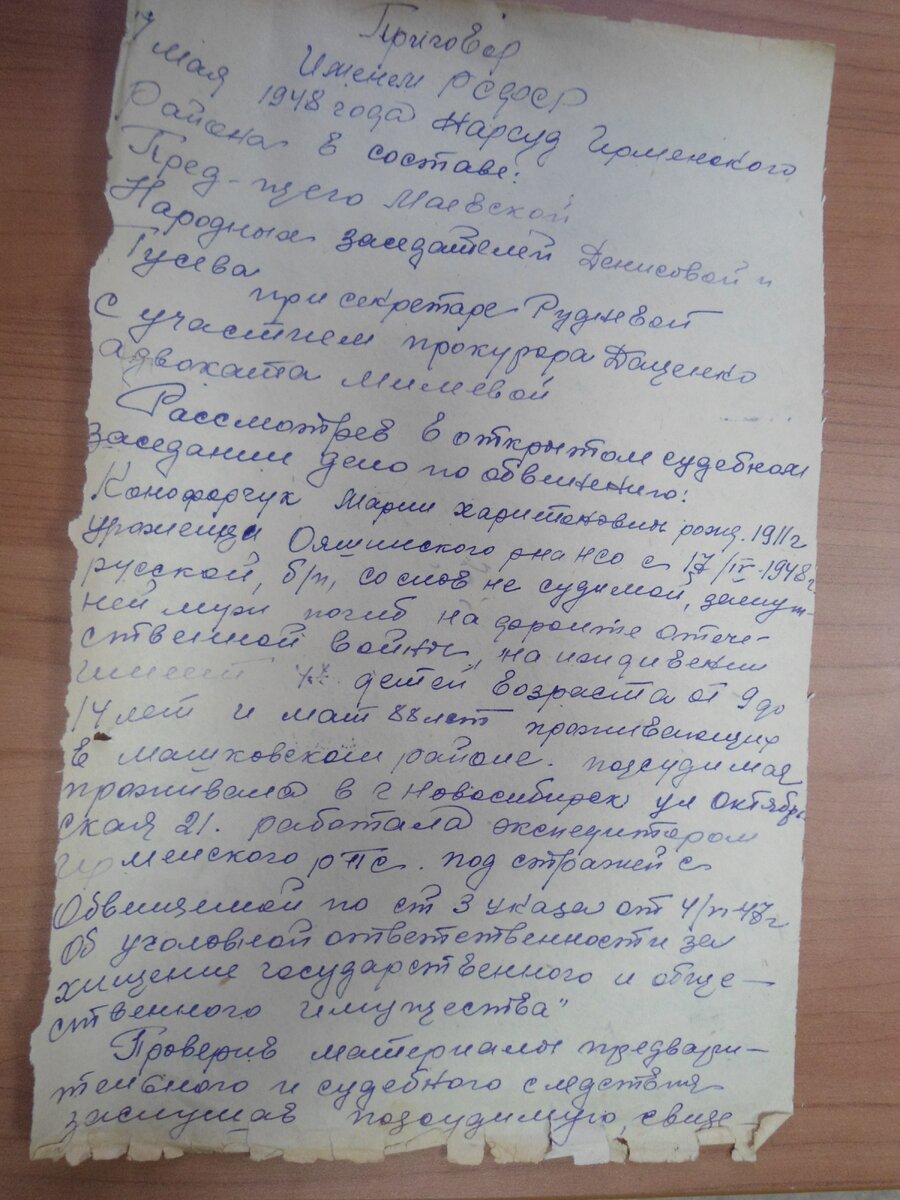 Приговор
Именем РСФСР
7 мая 1948 года Нарсуд Ирменского
Района в составе:
Пред-щего Маевской
Народных заседателей Денисовой и
Гусева
при секретаре Рудневой
С участием прокурора Даценко
адвоката
Рассмотрев в открытом судебном
заседании дело по обвинению:
Конофадчук Марии Харитоновны рожд. 1911 г
Уроженца Ояшинского р-на НСО с 17/IV-1948 г.
русской, б/п, со слов не судимой, замуж-
ней муж погиб на фронте отече-
ственной войны, на иждивении
имеет детей возраста от 9 до
14 лет и мат 88 лет проживающих
в Мошковском районе. подсудимая
проживала в г Новосибирск ул Октябрь
ская 21. работала экспедитором
Ирменского рпс. под стражей с
Обвиняемой по ст 3 указа от 4/п-47 г
Об уголовной ответственности за
хищение государственного и обще-
ственного имущества"
Проверив материалы предвари-
тельного и судебного следствия
заслушав подсудимую, свиде-